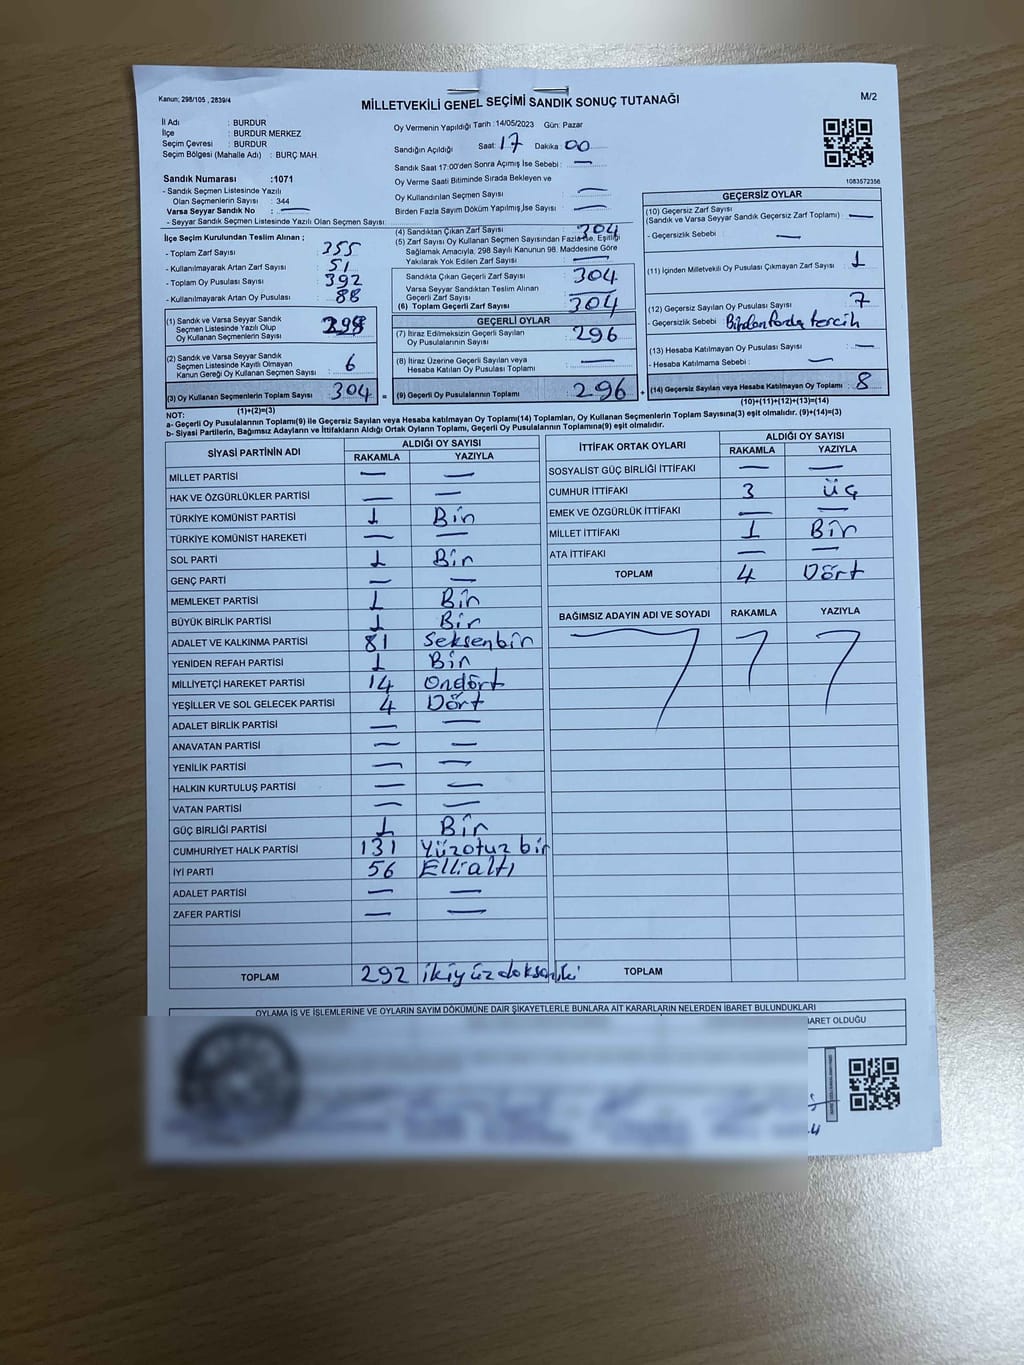 Kanun; 298/105 , 2839/4
MİLLETVEKİLİ GENEL SEÇİMİ SANDIK SONUÇ TUTANAĞI
M/2
İl Adı : BURDUR
İlçe : BURDUR MERKEZ
Seçim Çevresi : BURDUR
Seçim Bölgesi (Mahalle Adı) : BURÇ MAH.
Sandık Numarası :1071
- Sandık Seçmen Listesinde Yazılı
Olan Seçmenlerin Sayısı : 344
Varsa Seyyar Sandık No : —
- Seyyar Sandık Seçmen Listesinde Yazılı Olan Seçmen Sayısı:
Oy Vermenin Yapıldığı Tarih :14/05/2023 Gün: Pazar
Sandığın Açıldığı Saat: 17 Dakika 00
Sandık Saat 17:00'den Sonra Açımış İse Sebebi : —
Oy Verme Saati Bitiminde Sırada Bekleyen ve
Oy Kullandırılan Seçmen Sayısı —
Birden Fazla Sayım Döküm Yapılmış,İse Sayısı : —
1083572356
İlçe Seçim Kurulundan Teslim Alınan ;
- Toplam Zarf Sayısı : 355
- Kullanılmayarak Artan Zarf Sayısı : 51
- Toplam Oy Pusulası Sayısı : 392
- Kullanılmayarak Artan Oy Pusulası : 88
(1) Sandık ve Varsa Seyyar Sandık
Seçmen Listesinde Yazılı Olup
Oy Kullanan Seçmenlerin Sayısı : 298
(2) Sandık ve Varsa Seyyar Sandık
Seçmen Listesinde Kayıtlı Olmayan
Kanun Gereği Oy Kullanan Seçmen Sayısı : 6
(3) Oy Kullanan Seçmenlerin Toplam Sayısı : 304 =
(1)+(2)=(3)
(4) Sandıktan Çıkan Zarf Sayısı 304
(5) Zarf Sayısı Oy Kullanan Seçmen Sayısından Fazla İse, Eşitliği
Sağlamak Amacıyla, 298 Sayılı Kanunun 98. Maddesine Göre
Yakılarak Yok Edilen Zarf Sayısı : —
Sandıkta Çıkan Geçerli Zarf Sayısı 304
Varsa Seyyar Sandıktan Teslim Alınan
Geçerli Zarf Sayısı —
(6) Toplam Geçerli Zarf Sayısı 304
GEÇERLİ OYLAR
(7) İtiraz Edilmeksizin Geçerli Sayılan
Oy Pusulalarının Sayısı: 296
(8) İtiraz Üzerine Geçerli Sayılan veya
Hesaba Katılan Oy Pusulası Toplamı : —
(9) Geçerli Oy Pusulalarının Toplamı : 296 +
GEÇERSİZ OYLAR
(10) Geçersiz Zarf Sayısı
(Sandık ve Varsa Seyyar Sandık Geçersiz Zarf Toplamı) : —
- Geçersizlik Sebebi : —
(11) İçinden Milletvekili Oy Pusulası Çıkmayan Zarf Sayısı : 1
(12) Geçersiz Sayılan Oy Pusulası Sayısı : 7
- Geçersizlik Sebebi : Birden fazla tercih
(13) Hesaba Katılmayan Oy Pusulası Sayısı : —
- Hesaba Katılmama Sebebi : —
(14) Geçersiz Sayılan veya Hesaba Katılmayan Oy Toplamı : 8
(10)+(11)+(12)+(13)=(14)
NOT:
a- Geçerli Oy Pusulalarının Toplamı(9) ile Geçersiz Sayılan veya Hesaba katılmayan Oy Toplamı(14) Toplamları, Oy Kullanan Seçmenlerin Toplam Sayısına(3) eşit olmalıdır. (9)+(14)=(3)
b- Siyasi Partilerin, Bağımsız Adayların ve İttifakların Aldığı Ortak Oyların Toplamı, Geçerli Oy Pusulalarının Toplamına(9) eşit olmalıdır.
SİYASİ PARTİNİN ADI ALDIĞI OY SAYISI
RAKAMLA YAZIYLA
MİLLET PARTİSİ — —
HAK VE ÖZGÜRLÜKLER PARTİSİ — —
TÜRKİYE KOMÜNİST PARTİSİ 1 Bir
TÜRKİYE KOMÜNİST HAREKETİ — —
SOL PARTİ 1 Bir
GENÇ PARTİ — —
MEMLEKET PARTİSİ 1 Bir
BÜYÜK BİRLİK PARTİSİ 1 Bir
ADALET VE KALKINMA PARTİSİ 81 Seksenbir
YENİDEN REFAH PARTİSİ 1 Bir
MİLLİYETÇİ HAREKET PARTİSİ 14 Ondört
YEŞİLLER VE SOL GELECEK PARTİSİ 4 Dört
ADALET BİRLİK PARTİSİ — —
ANAVATAN PARTİSİ — —
YENİLİK PARTİSİ — —
HALKIN KURTULUŞ PARTİSİ — —
VATAN PARTİSİ — —
GÜÇ BİRLİĞİ PARTİSİ 1 Bir
CUMHURİYET HALK PARTİSİ 131 Yüzotuz bir
İYİ PARTİ 56 Ellialtı
ADALET PARTİSİ — —
ZAFER PARTİSİ — —
TOPLAM 292 ikiyüzdoksaniki
İTTİFAK ORTAK OYLARI ALDIĞI OY SAYISI
RAKAMLA YAZIYLA
SOSYALİST GÜÇ BİRLİĞİ İTTİFAKI — —
CUMHUR İTTİFAKI 3 üç
EMEK VE ÖZGÜRLÜK İTTİFAKI — —
MİLLET İTTİFAKI 1 Bir
ATA İTTİFAKI — —
TOPLAM 4 Dört
BAĞIMSIZ ADAYIN ADI VE SOYADI RAKAMLA YAZIYLA
TOPLAM
OYLAMA İŞ VE İŞLEMLERİNE VE OYLARIN SAYIM DÖKÜMÜNE DAİR ŞİKAYETLERLE BUNLARA AİT KARARLARIN NELERDEN İBARET BULUNDUKLARI
BARET OLDUĞU